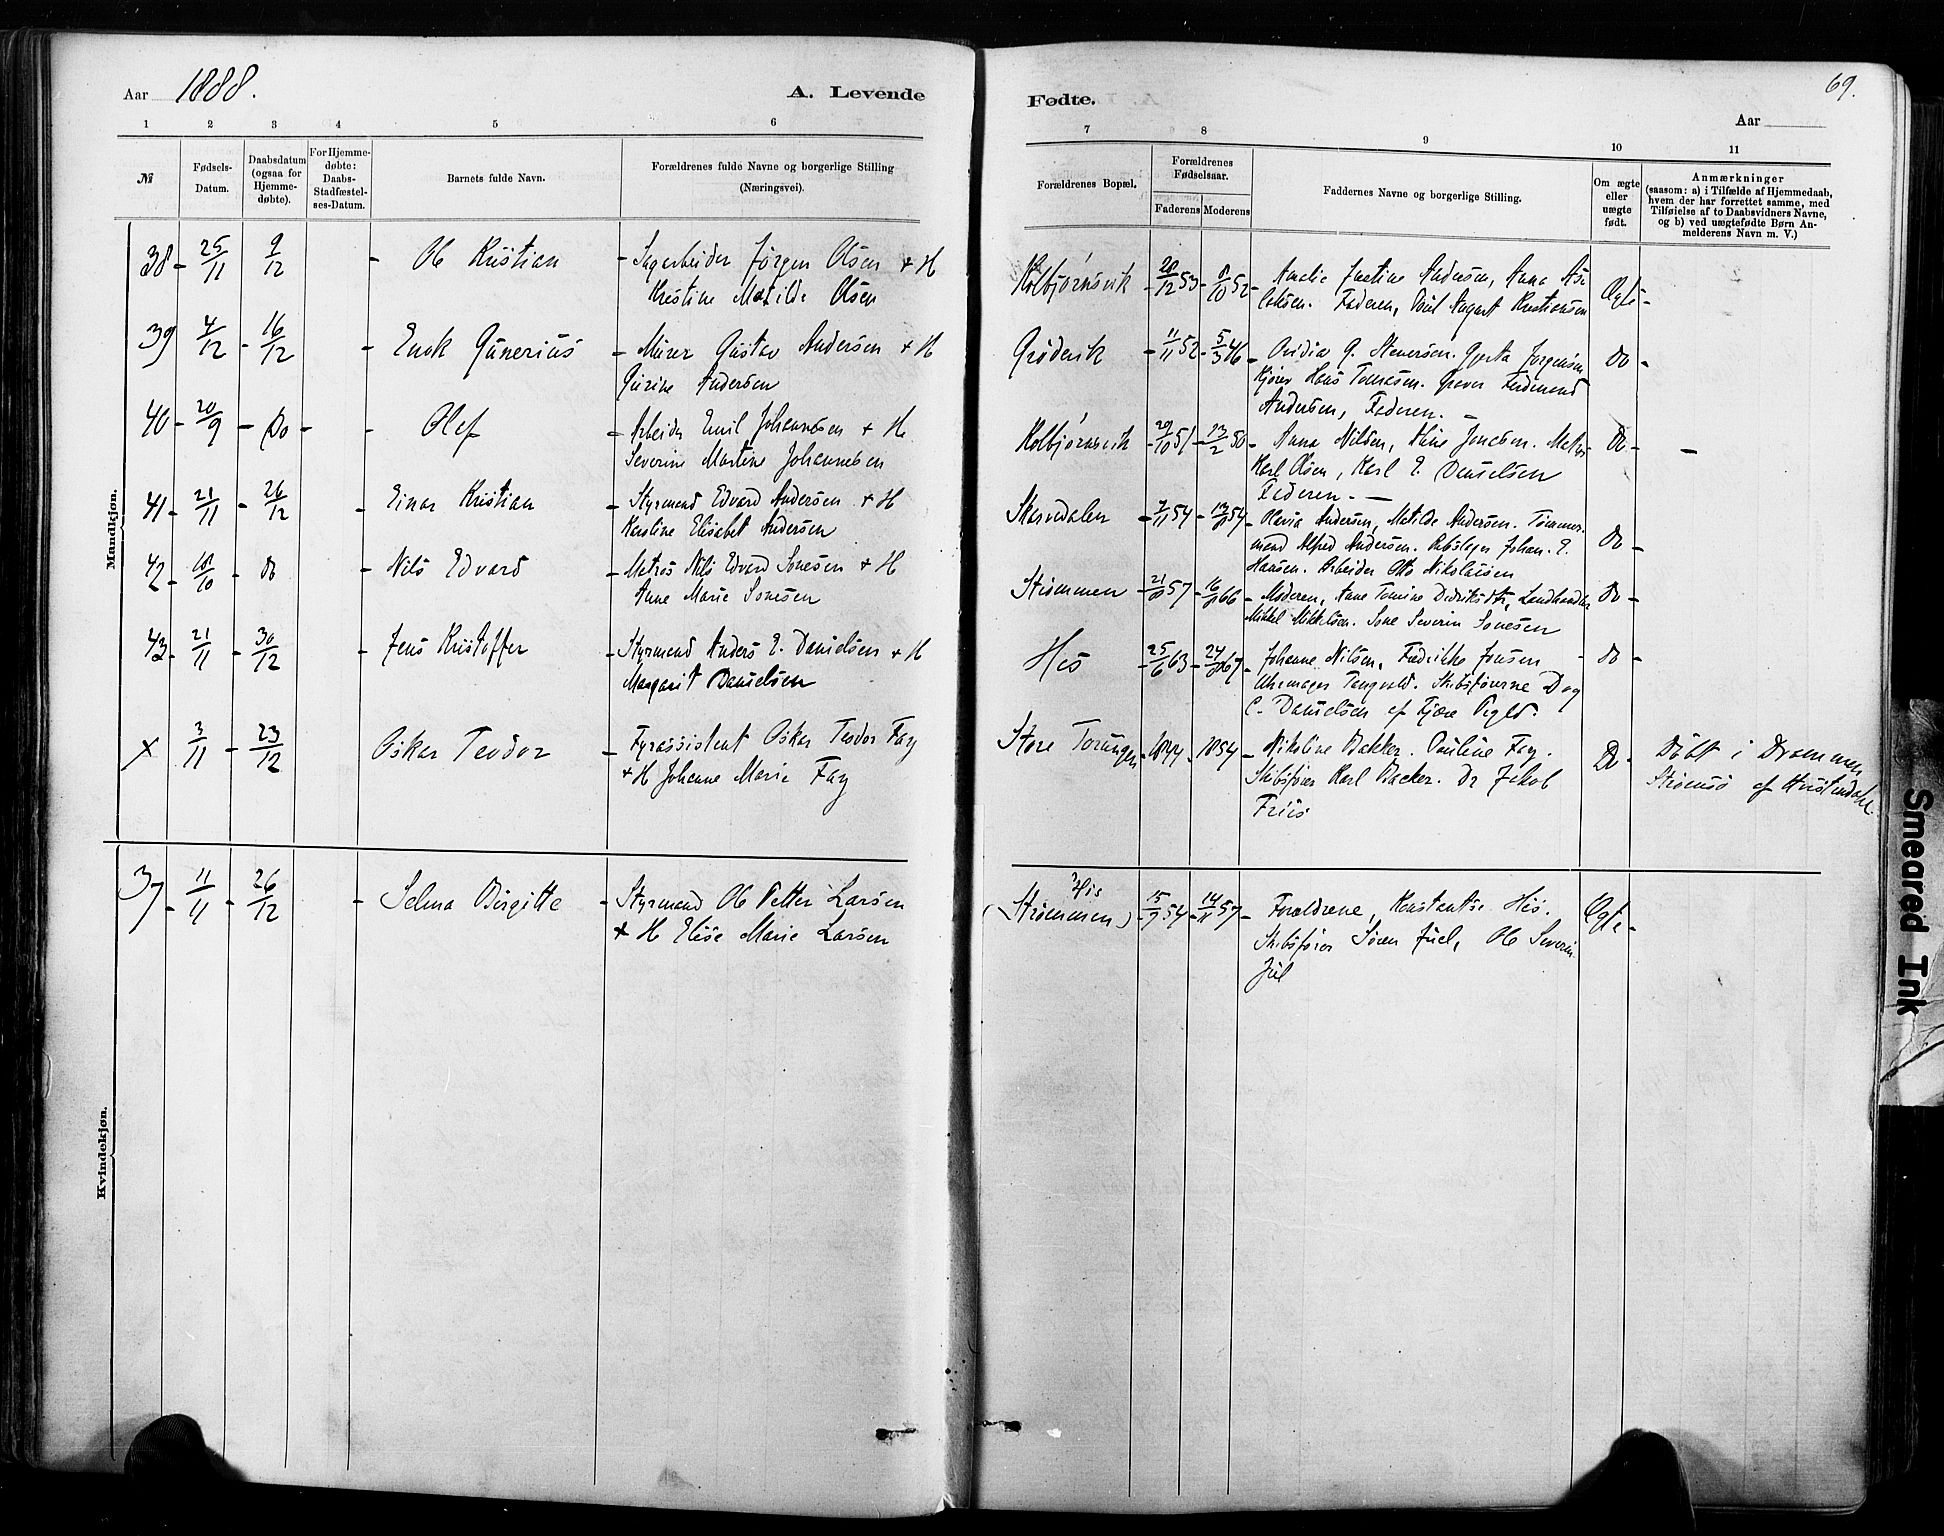 Aar 1888.
A. Levende
1 2 3 4 5 6
№
Fødsels-
Datum.
Daabsdatum
(ogsaa for
Hjemme-
døbte).
For Hjemme-
døbte:
Daabs-
Stadfæstel-
ses-Datum.
Barnets fulde Navn.
Forældrenes fulde Navne og borgerlige Stilling
(Næringsvei).
Mandkjøn.
38 - 25/11 9/12 - Ole Kristian - Sagarbeider Jørgen Olsen + H
Kristine Matilde Olsen
39 4/12 - 16/12 - Enok Gunerius - Murer Gustav Andersen + H
Gurine Andersen
40 - 20/9 - Do - - Olaf - Arbeider Emil Johannesen + H.
Severine Martine Johannesen
41 - 21/11 - 26/12 - Einar Kristian - Styrmand Edvard Andersen + H
Karoline Elisabet Andersen
42 - 18/10 - do - Nils Edvard - Matros Nils Edvard Sonesen + H
Anne Marie Sonesen
43 - 21/11 - 30/12 - Jens Kristoffer - Styrmand Anders E. Danielsen + H
Margarit Danielsen
x 3/11 - 23/12 Oskar Teodor - Fyrassistent Oskar Teodor Fay
+ H Johanne Marie Fay
Kvindekjøn.
37 - 11/11 - 26/12 - Selma Birgitte - Styrmand Ole Petter Larsen
+ H Elise Marie Larsen
Fødte.
69.
Aar
7 8 9 10 11
Forældrenes Bopæl.
Forældrenes
Fødselsaar.
Faderens Moderens
Faddernes Navne og borgerlige Stilling.
Om ægte
eller
uægte
født.
Anmærkninger
(saasom: a) i Tilfælde af Hjemmedaab,
hvem der har forrettet samme, med
Tilføielse af to Daabsvidners Navne,
og b) ved uægtefødte Børn An-
melderens Navn m. V.)
Kolbjørnsvik - 28/12 53 - 8/10 52 - Amalie Justine Andersen, Anna As-
laksen. Faderen, August Kristiansen Ægte -
Grødevik - 11/11 52 - 5/3 46 - Ovidia G. Steversen. Jørgensen
Hans Tomasen. Ferdinand
Andersen, Faderen. - Do -
Kolbjørnsvik - 29/10 51 - 23/2 50 - Anna Nilsen, Aline Jensen. Matros
Karl Olsen, Karl E. Danielsen
Faderen. - Do - -
Skarvedalen - 7/11 54 - 13/8 54 - Olavia Andersen, Matilde Andersen. Tømmer-
mand Alfred Andersen. Rebslager Johan. E.
Hansen. Arbeider Otto Nikolaisen Do -
Strømmen - 21/8 57 - 16/8 66 - Moderen, Anne Tomine Didriksdtr, Landhandler
Mikkel Mikkelsen. Sone Severin Sonesen Do -
His - 25/6 63 - 24/8 67 - Johanne Nilsen, Fredrikke Jensen - do -
Uhrmager Tangvald. Skibsførerne Dog
C. Danielsen af Fjære Pregld.
Store Torungen - 1844 - 1854 - Nikoline Bakker. Pauline Fay.
Skibsfører Karl Backer. Do Jakob
Friis Do - Døbt i Drammen
Strømsø af Hvistendahl.
His
(Strømmen) - 15/9 54 - 14/11 57 - Forældrene, Konstantse His.
Skibsfører Søren Juel, Ole Severin
Juel Ægte -
Smeared Ink